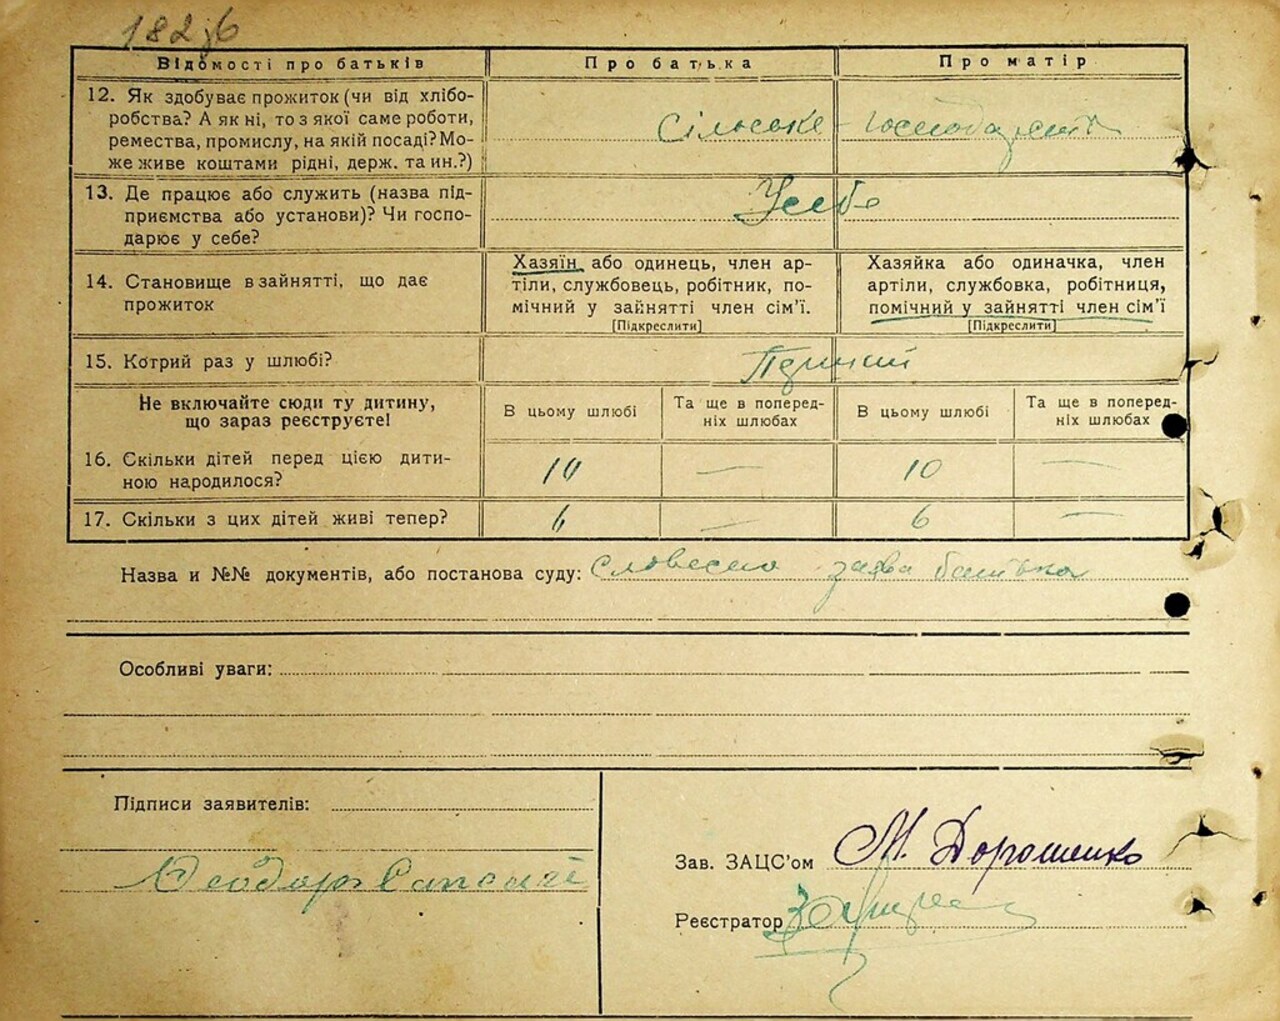 182зб
Відомості про батьків Про батька Про матір
12. Як здобуває прожиток (чи від хлібо-
робства? А як ні, то з якої саме роботи,
ремества, промислу, на якій посаді? Мо-
же живе коштами рідні, держ. та ин.?)
Сільське - господарств
13. Де працює або служить (назва під-
приємства або установи)? Чи госпо-
дарює у себе?
У себе
14. Становище в зайнятті, що дає
прожиток
Хазяїн або одинець, член ар-
тіли, службовець, робітник, по-
мічний у зайнятті член сім'ї.
[Підкреслити]
Хазяйка або одиначка, член
артіли, службовка, робітниця,
помічний у зайнятті член сім'ї
[Підкреслити]
15. Котрий раз у шлюбі?
Не включайте сюди ту дитину,
що зараз реєструєте!
В цьому шлюбі
Та ще в поперед-
ніх шлюбах
В цьому шлюбі
Та ще в поперед-
ніх шлюбах
16. Скільки дітей перед цією дити-
ною народилося?
10 — 10 —
17. Скільки з цих дітей живі тепер? 6 — 6 —
Назва и №№ документів, або постанова суду: Словесна заява батька
Особливі уваги:
Підписи заявителів:
Зав. ЗАЦС'ом М. Дорошенко
Реєстратор